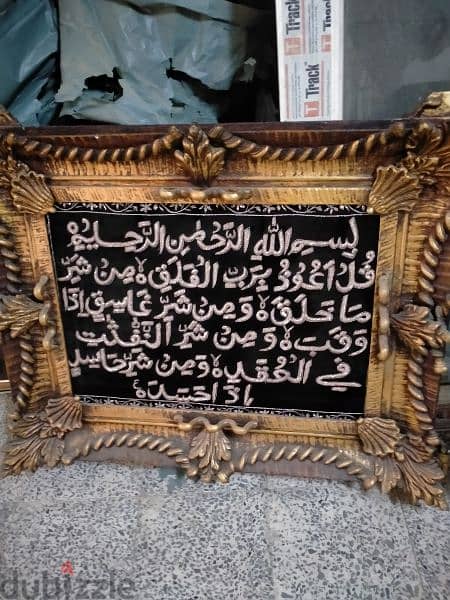 Track
Track
بسم الله الرحمن الرحيم
قل اعوذ برب الفلق ٥ من شر
ما خلق ٥ و من شر غاسق إذا
وقب ٥ و من شر النفثت
في العقد ٥ و من شر حاسد
إذا حسد ٥
dubizzle